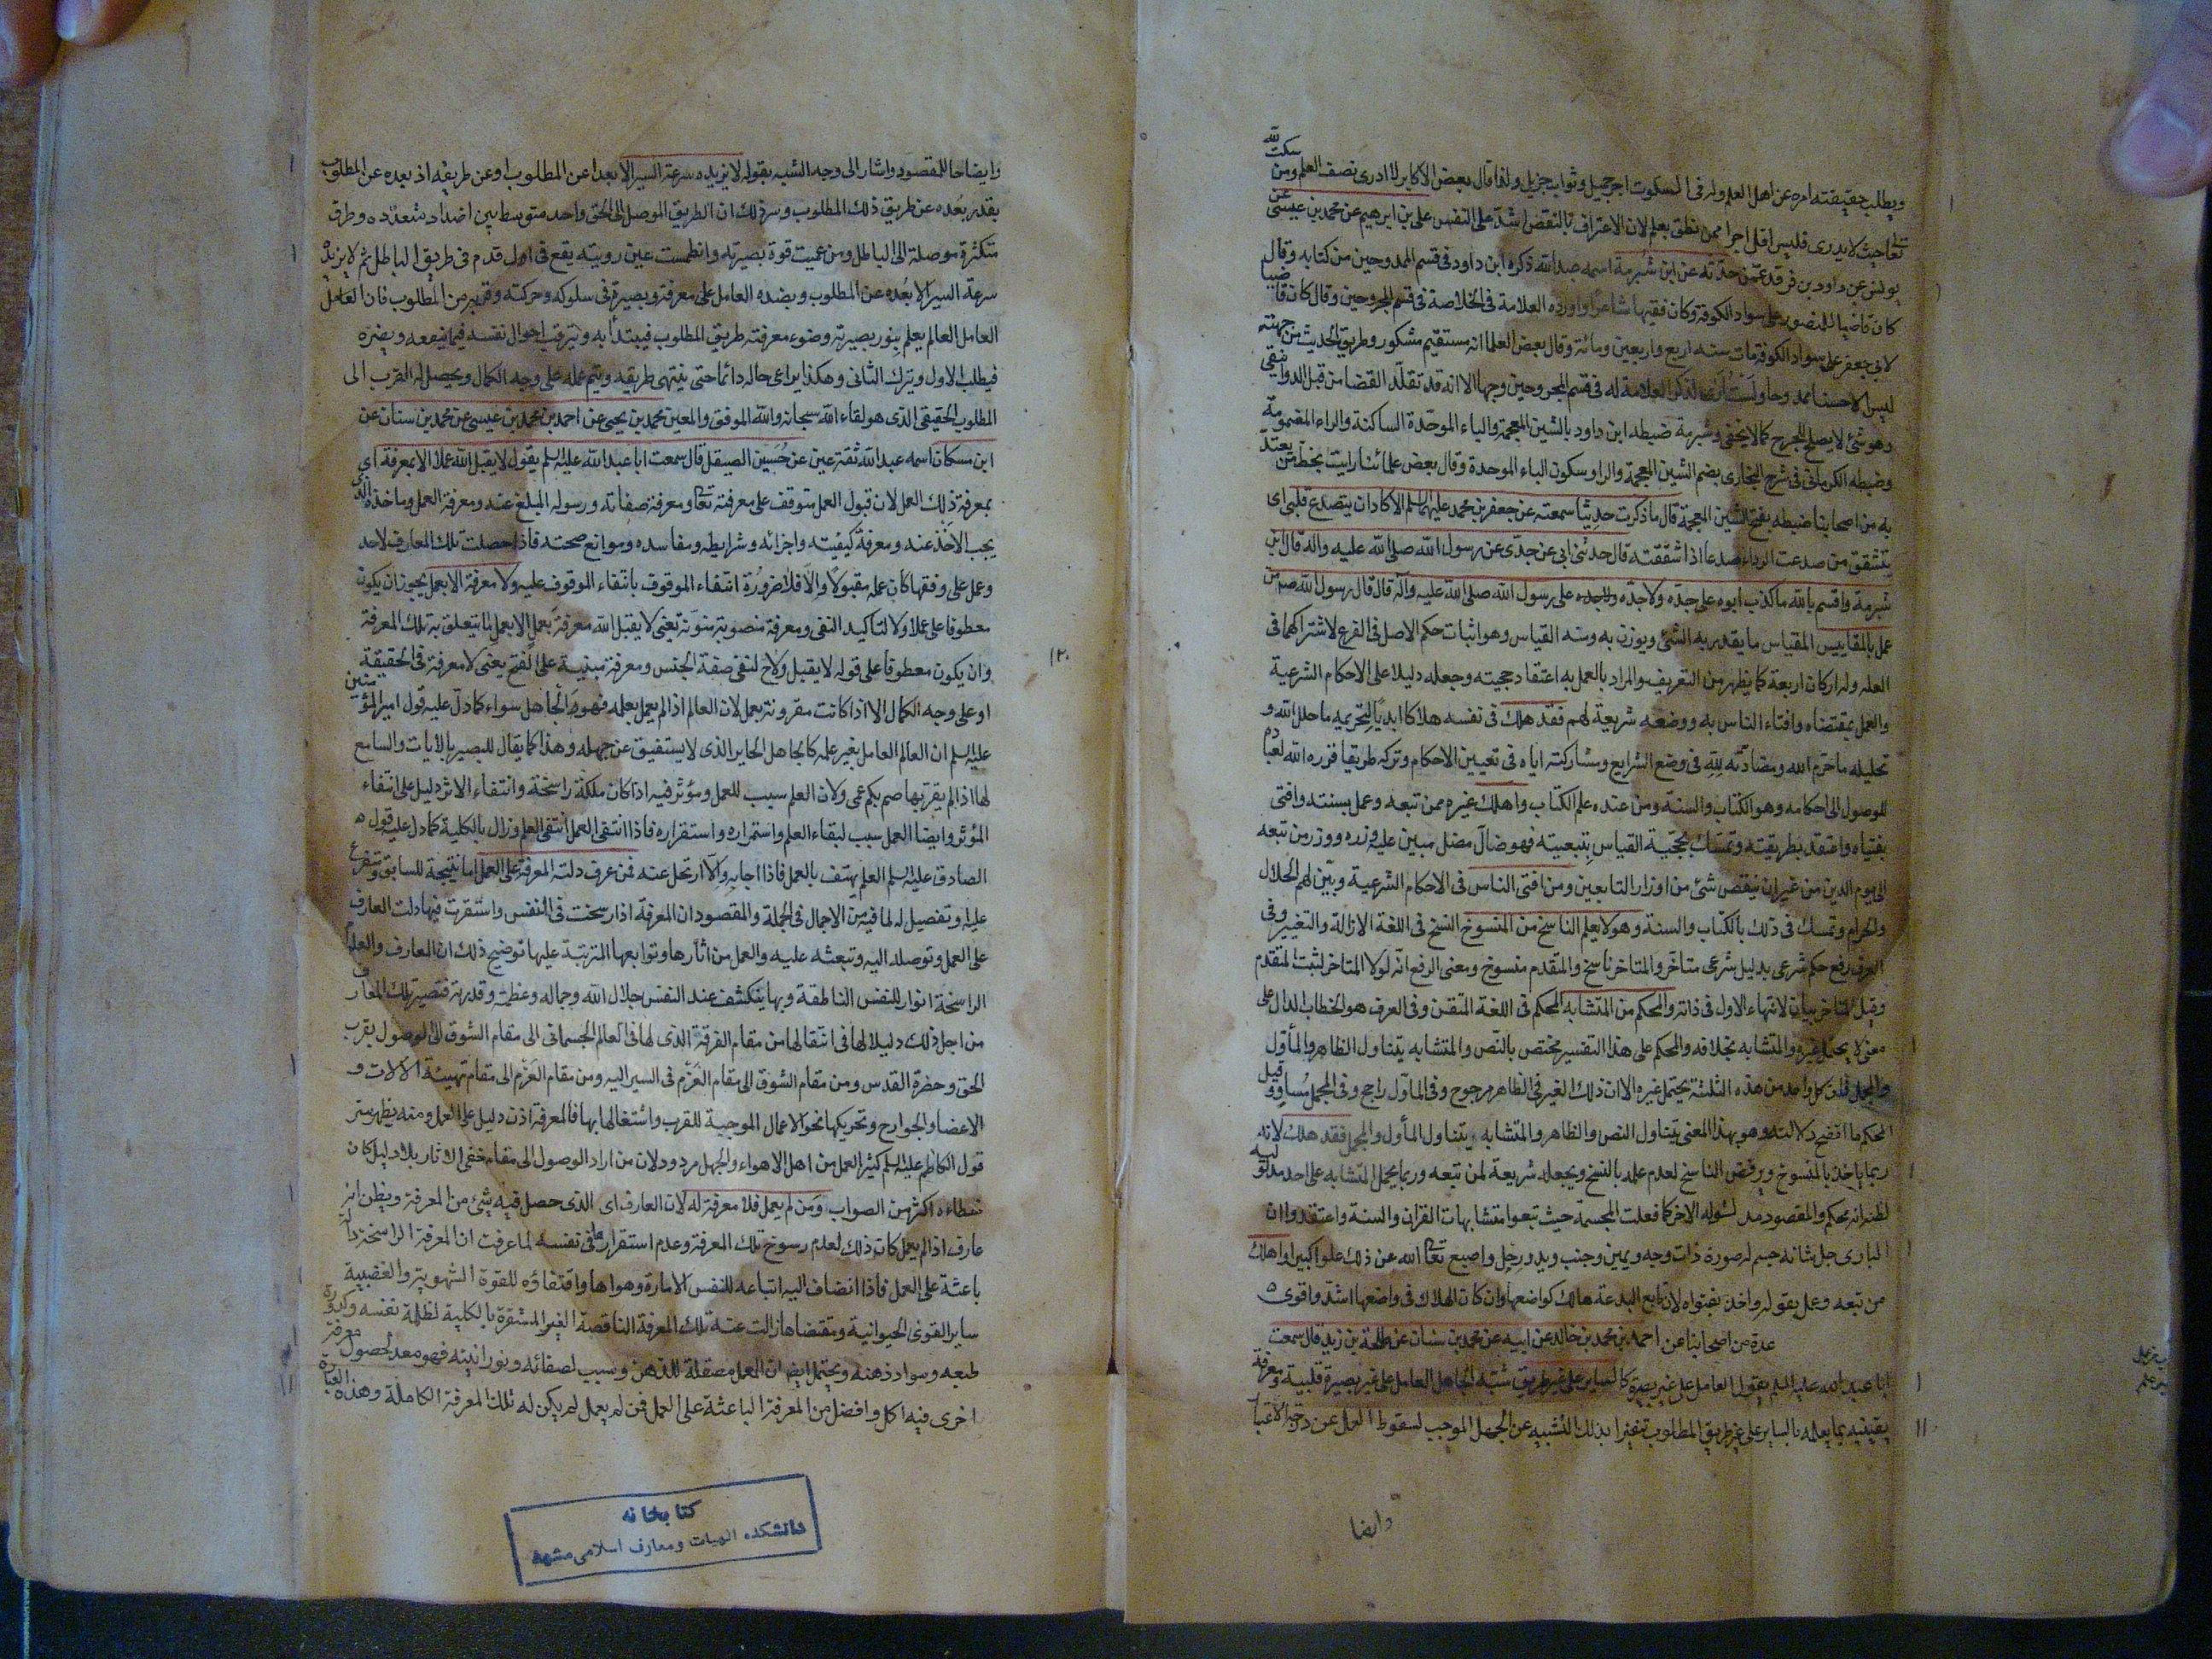 ويطلب حقيقته امره عن اهل العلم وله فى السكوت اجر جميل وثواب جزيل ولذا قال بعض الاكابر لا ادرى نصف العلم ومن سكت لله
تعالى حيث لا يدرى فليس اقل اجرا ممن نطق بعلم لان الاعتراف بالنقص اشد على النفس على بن ابرهيم عن محمد بن عيسى عن
يونس عن داود بن فرقد عمن حدثه عن ابن شبرمة اسمه عبد الله ذكره ابن داود فى قسم الممدوحين من كتابه وقال
كان قاضيا للمنصور على سواد الكوفة وكان فقيها شاعرا واورده العلامة فى الخلاصة فى قسم المجروحين وقال كان قاضيا
لابى جعفر على سواد الكوفة مات سنه اربع واربعين ومائة وقال بعض العلما انه مستقيم مشكور وطريق الحديث من جهته
ليس الا حسنا ممدوحا ولست ارى لذكر العلامة له فى قسم المجروحين وجها الا انه قد تقلد القضا من قبل الدوانيقى
وهو شئ لا يصلح للجرح كما لا يخفى وشبرمة ضبطه ابن داود بالشين المعجمة والباء الموحدة الساكنة والراء المضمومة
وضبطه الكرمانى فى شرح البخارى بضم الشين المعجمة والرا وسكون الباء الموحدة وقال بعض علمائنا رايت بخط من يعتد
به من اصحابنا ضبطه بفتح الشين المعجمة قال ما ذكرت حديثا سمعته عن جعفر بن محمد عليهما السلم الا كاد ان يتصدع قلبى اى
يتشقق من صدعت الرداء صدعا اذا شققته قال حدثنى ابى عن جدى عن رسول الله صلى الله عليه واله قال ابن
شبرمة واقسم بالله ما كذب ابوه على جده ولا جده على رسول الله صلى الله عليه وآله قال قال رسول الله صم من
عمل بالمقاييس المقياس ما يقدر به الشئ ويوزن به ومنه القياس وهو اثبات حكم الاصل فى الفرع لاشتراكهما فى
العلة وله اركان اربعة كما يظهر من التعريف والمراد بالعمل به اعتقاد حجيته وجعله دليلا على الاحكام الشرعية
والعمل بمقتضاه وافتاء الناس به ووضعه شريعة لهم فقد هلك فى نفسه هلاكا ابديا لتحريمه ما حلل الله و
تحليله ما حرم الله ومضادته لله فى وضع الشرايع ومشاركته اياه فى تعيين الاحكام وتركه طريقا قرره الله لعباده
للوصول الى احكامه وهو الكتاب والسنة ومن عنده علم الكتاب واهلك غيره ممن تبعه وعمل بسنته وافتى
بفتياه واعتقد بطريقته وتمسك بحجية القياس بتبعيته فهو ضال مضل مبين عليه وزره ووزر من تبعه
الى يوم الدين من غير ان ينقص شئ من اوزار التابعين ومن افتى الناس فى الاحكام الشرعية وبين لهم الحلال
والحرام وتمسك فى ذلك بالكتاب والسنة وهو لا يعلم الناسخ من المنسوخ النسخ فى اللغة الازالة والتغيير وفى
العرف رفع حكم شرعى بدليل شرعى متاخر والمتاخر ناسخ والمتقدم منسوخ ومعنى الرفع انه لولا المتاخر لثبت المتقدم
وقيل المتاخر بيان لانتهاء الاول فى ذاته والمحكم من المتشابه المحكم فى اللغة المتقن وفى العرف هو الخطاب الدال على
معنى لا يحتمل غيره والمتشابه بخلافه والمحكم على هذا التفسير مختص بالنص والمتشابه يتناول الظاهر والمأول
والمجمل فان كل واحد من هذه الثلثة يحتمل غيره الا ان ذلك الغير فى الظاهر مرجوح وفى المأول راجح وفى المجمل مساو وقيل
المحكم ما اتضح دلالته وهو بهذا المعنى يتناول النص والظاهر والمتشابه يتناول المأول والمجمل فقد هلك لانه
ربما ياخذ بالمنسوخ ويرفض الناسخ لعدم علمه بالنسخ ويجعله شريعة لمن تبعه وربما يحمل المتشابه على احد مدلوليه
لظنه انه محكم والمقصود مدلوله الاخر كما فعلت المجسمة حيث تبعوا متشابهات القران والسنة واعتقدوا ان
البارى جل شانه جسم له صورة ذات وجه ويمين وجنب ويد ورجل واصبع تعالى الله عن ذلك علوا كبيرا واهلك
من تبعه وعمل بقوله واخذ بفتواه لان تابع البدعة هالك كواضعها وان كان الهلاك فى واضعها اشد واقوى
عدة من اصحابنا عن احمد بن محمد بن خالد عن ابيه عن محمد بن سنان عن طلحة بن زيد قال سمعت
ابا عبد الله عليه السلم يقول العامل على غير بصيرة كالساير على غير طريق شبه الجاهل العامل على غير بصيرة قلبية ومعرفة
يقينيه بما يعمله بالساير على غير طريق المطلوب تنفيرا بذلك التشبيه عن الجهل الموجب لسقوط العمل عن درجة الاعتبار
وايضا
وايضاحا للمقصود واشار الى وجه الشبه بقوله لا يزيده سرعة السير الا بعدا عن المطلوب او عن طريقه اذ بعده عن المطلوب
بقدر بعده عن طريق ذلك المطلوب وسر ذلك ان الطريق الموصل الى الحق واحد متوسط بين اضداد متعدده وطرق
متكثرة موصلة الى الباطل ومن عميت قوة بصيرته وانطمست عين رويته يقع فى اول قدم فى طريق الباطل ثم لا يزيده
سرعة السير الا بعده عن المطلوب وبضده العامل على معرفة وبصيرة فى سلوكه وحركته وقربه من المطلوب فان العامل
العامل العالم يعلم بنور بصيرته وضوء معرفته طريق المطلوب فيبتدأ به ويترقب احوال نفسه فيما ينفعه ويضره
فيطلب الاول ويترك الثانى وهكذا يراعى حاله دائما حتى ينتهى طريقه ويتم عمله على وجه الكمال ويحصل له القرب الى
المطلوب الحقيقى الذى هو لقاء الله سبحانه والله الموفق والمعين محمد بن يحيى عن احمد بن محمد بن عيسى عن محمد بن سنان عن
ابن مسكان اسمه عبد الله ثقة عين عن حسين الصيقل قال سمعت ابا عبد الله عليه السلم يقول لا يقبل الله عملا الا بمعرفة اى
بمعرفة ذلك العمل لان قبول العمل متوقف على معرفته تعالى ومعرفة صفاته ورسوله المبلغ عنه ومعرفة العمل وماخذه الذى
يجب الاخذ عنه ومعرفة كيفيته واجزائه وشرايطه ومفاسده وموانع صحته فاذا حصلت تلك المعارف لاحد
وعمل على وفقها كان عمله مقبولا والا فلا ضرورة انتفاء الموقوف بانتفاء الموقوف عليه ولا معرفة الا بعمل يجوز ان يكون
معطوفا على عملا ولا لتاكيد النفى ومعرفة منصوبة منونة يعنى لا يقبل الله معرفة بعمل الا بعمل لما يتعلق به تلك المعرفة
وان يكون معطوفا على قوله لا يقبل ولاح لنفى صفة الجنس ومعرفة مبنية على الفتح يعنى لا معرفة فى الحقيقة
او على وجه الكمال الا اذا كانت مقرونة بعمل لان العالم اذا لم يعمل بعلمه فهو والجاهل سواء كما دل عليه قول امير المؤمنين
عليه السلم ان العالم العامل بغير علمه كالجاهل الحاير الذى لا يستفيق عن جهله وهذا كما يقال للبصير بالايات والسامع
لها اذا لم يقر بها صم بكم عمى ولان العلم سبب للعمل ومؤثر فيه اذا كان ملكة راسخة وانتفاء الاثر دليل على انتفاء
المؤثر وايضا العمل سبب لبقاء العلم واستمراره واستقراره فاذا انتفى العمل انتفى العلم وزال بالكلية كما دل عليه قول
الصادق عليه السلم العلم يهتف بالعمل فاذا اجابه والا ارتحل عنه فمن عرف دلته المعرفة على العمل اما نتيجة للسابق وتفرع
عليه وتفصيل له لما فيه من الاجمال فى الجملة والمقصود ان المعرفة اذا رسخت فى النفس واستقرت فيها دلت العارف
على العمل وتوصله اليه وتبعثه عليه والعمل من اثارها وتوابعها المترتبة عليها توضيح ذلك ان المعارف والعلوم
الراسخة انوار للنفس الناطقة وبها ينكشف عند النفس جلال الله وجماله وعظمته وقدرته فتصير تلك المعارف
من اجل ذلك دليلا لها فى انتقالها من مقام الفرقة الذى لها فى العالم الجسمانى الى مقام الشوق الى الوصول بقرب
الحق وحضرة القدس ومن مقام الشوق الى مقام العزم فى السير اليه ومن مقام العزم الى مقام تهيئة الالات و
الاعضا والجوارح وتحريكها نحو الاعمال الموجبة للقرب واشتغالها بها فالمعرفة اذن دليل على العمل ومنه يظهر سر
قول الكاظم عليه السلم كثير العمل من اهل الاهواء والجهل مردود لان من اراد الوصول الى مقام خفى الاثار بلا دليل كان
خطاءه اكثر من الصواب ومن لم يعمل فلا معرفة له لان العارف اى الذى حصل فيه شئ من المعرفة ويظن انه
عارف اذا لم يعمل كان ذلك لعدم رسوخ تلك المعرفة وعدم استقرارها فى نفسه لما عرفت ان المعرفة الراسخة دائما
باعثة على العمل فاذا انضاف اليه اتباعه للنفس الامارة وهواها واقتفاؤه للقوة الشهوية والغضبية
ساير القوى الحيوانية ومقتضاها زالت عنه تلك المعرفة الناقصة الغير المستقرة بالكلية لظلمة نفسه وكدورة
طبعه وسواد ذهنه ويحتمل ايضا ان العمل مصقلة للذهن وسبب لصفائه ونورانيته فهو معد لحصول معرفة
اخرى فيه اكمل وافضل من المعرفة الباعثة على العمل فمن لم يعمل لم يكن له تلك المعرفة الكاملة وهذه العبارة
كتابخانه
دانشكده الهيات ومعارف اسلامى مشهد